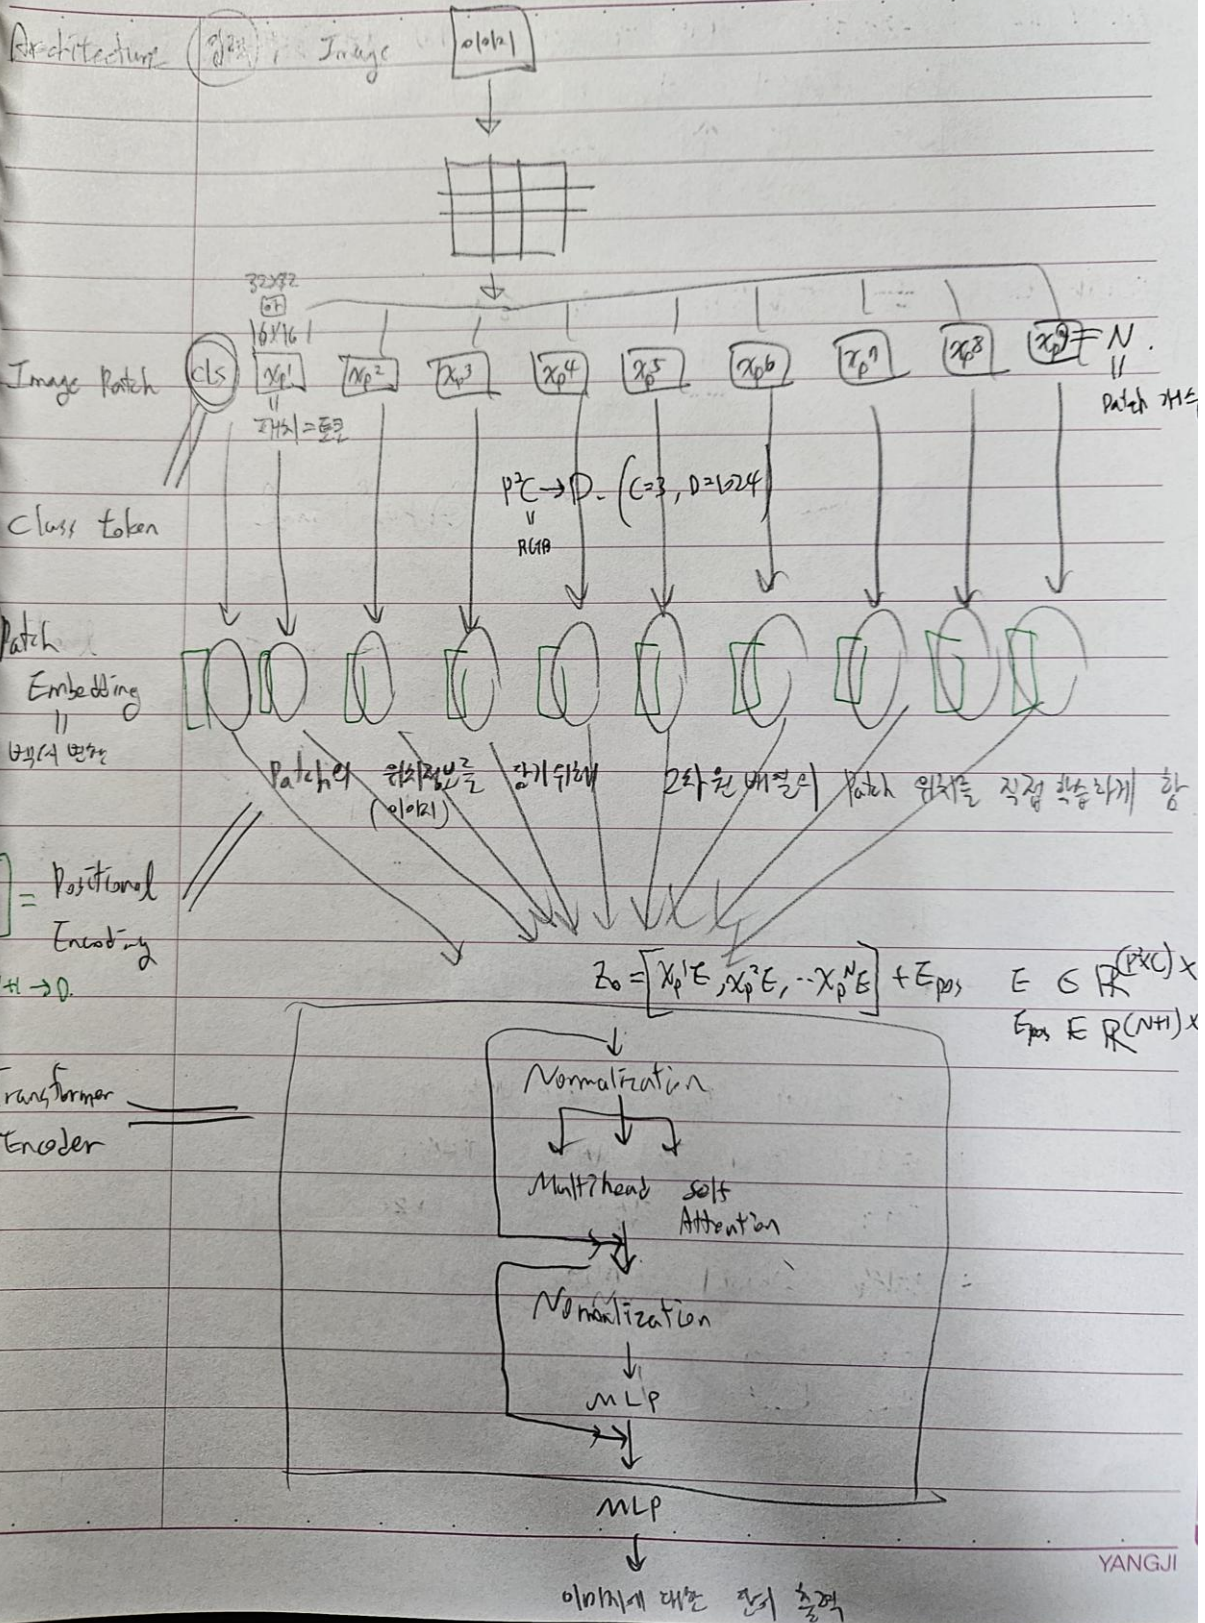 Architecture
Image
이미지
32×32
or
16×16
Image Patch
CLS
xp1
xp2
xp3
xp4
xp5
xp6
xp7
xp8
xp9
= N.
=
패치=토큰
=
Patch 개수
P²C → D. (C=3, D=1024)
=
RGB
Class token
Patch
Embedding
=
벡터 변환
Patch의 위치정보를 담기위해 2차원 배열의 Patch 위치를 직접 학습하게 함
(이미지)
= Positional
Encoding
+1 → D.
Z₀ = [xp¹E, xp²E, ... xpᴺE] + Epos E ∈ ℝ(P²×C)×
Epos ∈ ℝ(N+1)×
Transformer
Encoder
Normalization
Multihead Self
Attention
Normalization
MLP
MLP
이미지에 대한 단어 출력
YANGJI